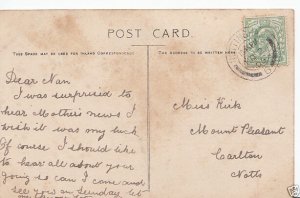 POST CARD.
THIS SPACE MAY BE USED FOR INLAND CORRESPONDENCE
THE ADDRESS TO BE WRITTEN HERE
Dear Nan
I was surprised to
hear Mother's news I
wish it was my luck
Of course I should like
to hear all about your
going so can I come and
see you on Sunday let
Miss Kirk
Mount Pleasant
Carlton
Notts